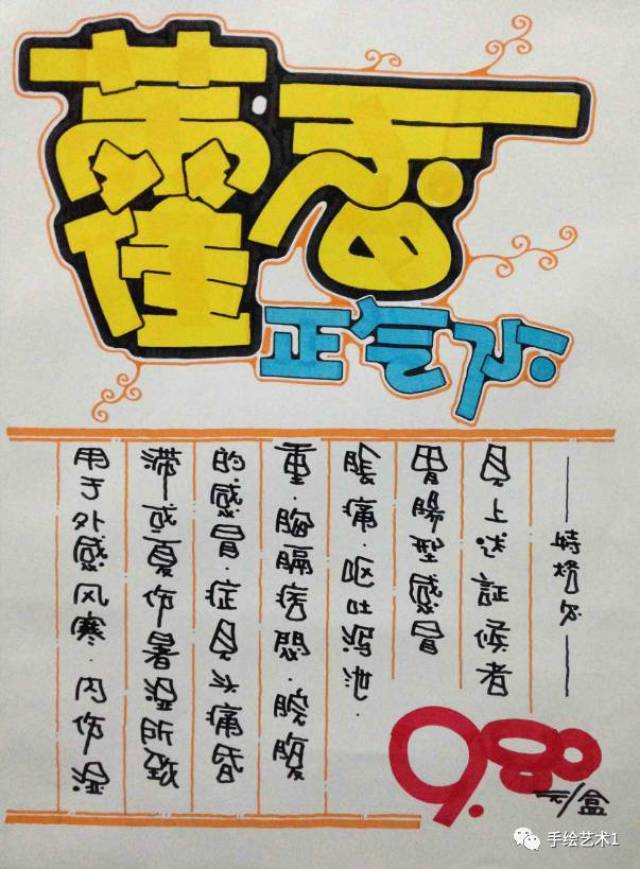 藿香
正气水
用于外感风寒·内伤湿
滞或夏伤暑湿所致
的感冒·症见头痛昏
重·胸膈痞悶·脘腹
脹痛·呕吐泻泄·
胃腸型感冒
见上述証候者
——特格尔——
9.80元/盒
手绘艺术1